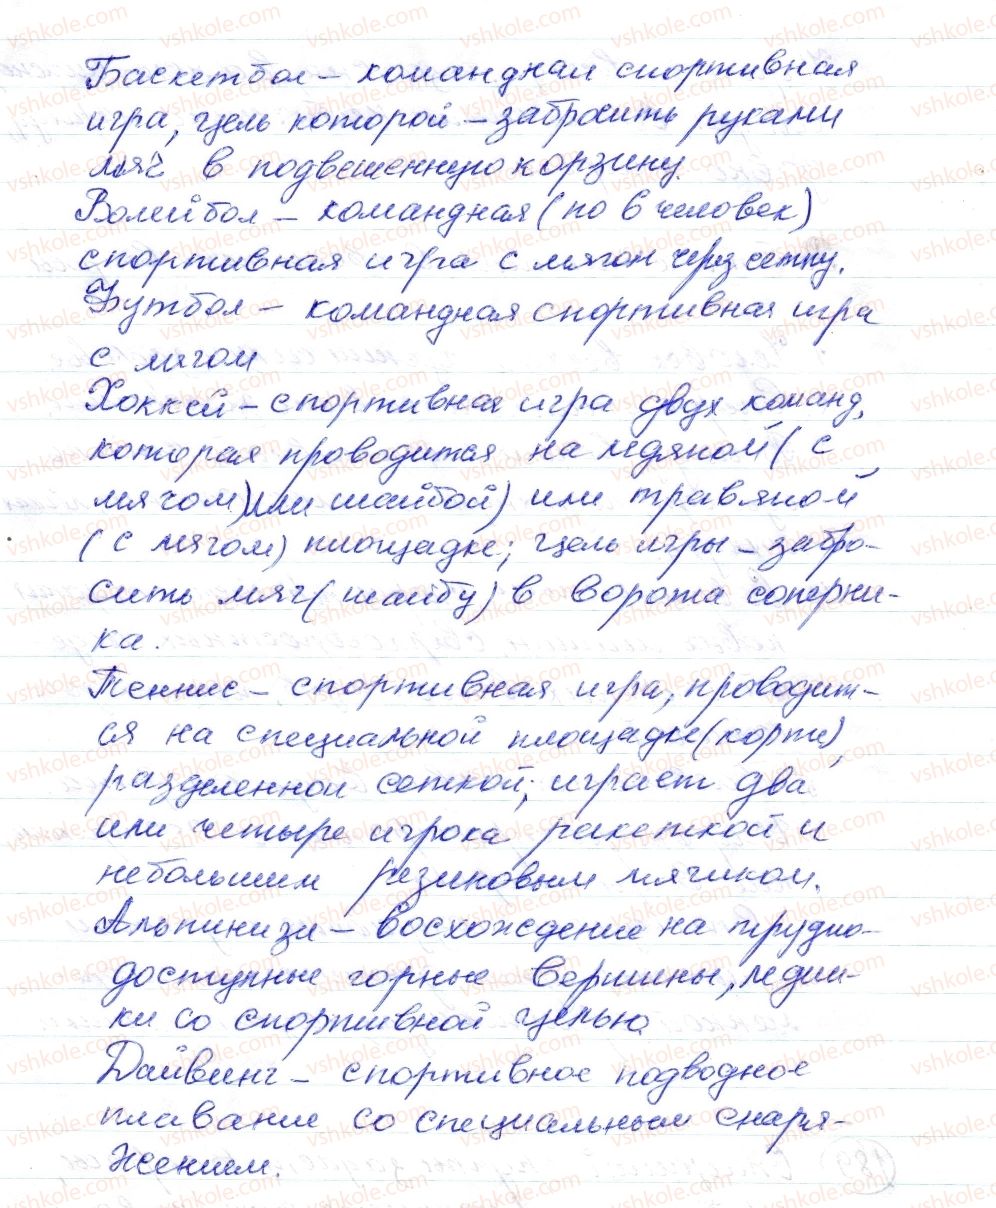 Баскетбол – командная спортивная
игра, цель которой – забросить руками
мяч в подвешенную корзину.
Волейбол – командная (по 6 человек)
спортивная игра с мячом через сетку.
Футбол – командная спортивная игра
с мячом
Хоккей – спортивная игра двух команд,
которая проводится на ледяной (с
мячом) или шайбой) или травяной
(с мячом) площадке; цель игры – забро-
сить мяч (шайбу) в ворота соперни-
ка.
Теннис – спортивная игра, проводит-
ся на специальной площадке (корти),
разделенной сеткой; играет два
или четыре игрока ракеткой и
небольшим резиновым мячиком.
Альпинизм – восхождение на трудно-
доступные горные вершины, ледни-
ки со спортивной целью
Дайвинг – спортивное подводное
плавание со специальным снаря-
жением.
189
vshkole.com